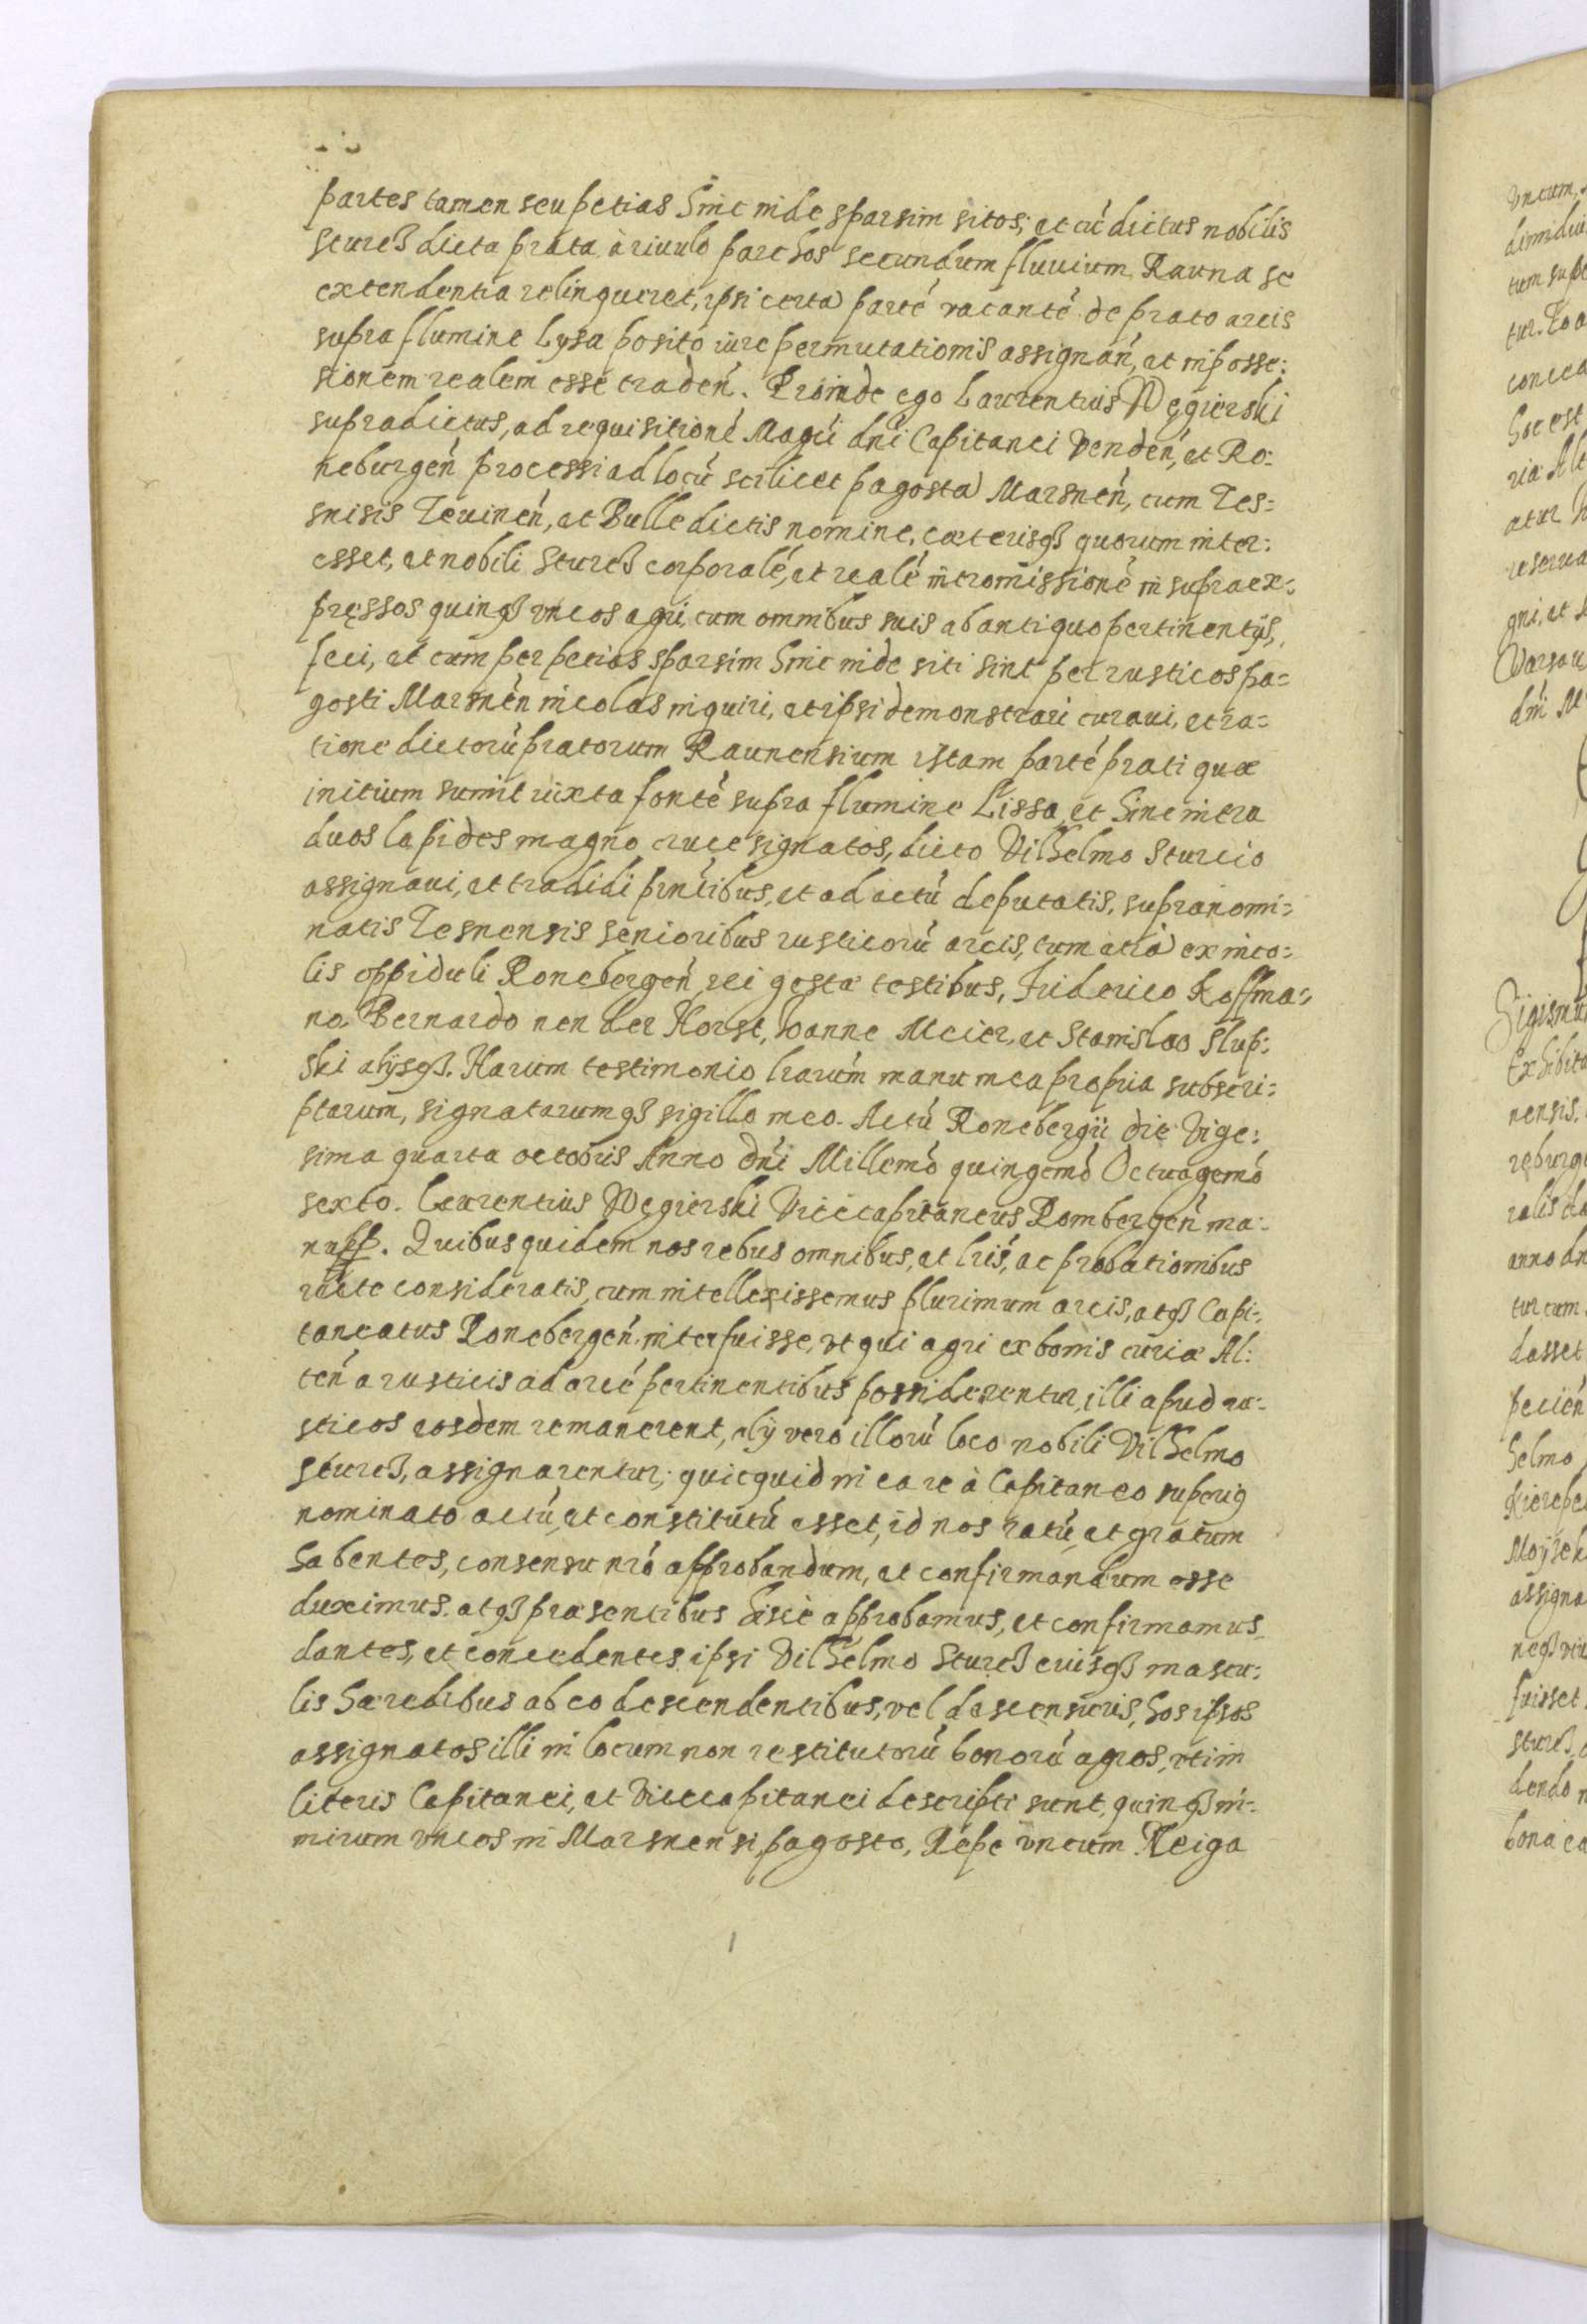 partes tamen seu petias hinc inde sparsim sitos; et cú dictus nobilis
sturcʒ dicta prata à riuulo parchos secundum fluuium Rauna se
extendentia relinqueret, ipsi certa parté vacanté de prato arcis
supra flumine Lysa posito iure permutationis assignań, et in posse:
sionem realem esse tradeń. Proinde ego Laurentius Węgierski
supradictus, ad requisitioné Magci dńi Capitanei Vendeń, et Ro:
neburgeń processi ad locú scilicet pagosta Marsneń, cum Tes:
snisis Tevineń, et Bulle dictis nomine, cæterisqʒ quorum inter:
esset, et nobili Sturcʒ corporalé, et realé intromissioné in supra ex:
pręssos quinqʒ vncos agri, cum omnibus suis ab antiquo pertinentijs,
feci, et cum per petias sparsim hinc inde siti sint per rusticos pa:
gosti Marsneń incolas inquiri, et ipsi demonstrari curaui, et ra:
tione dictorú pratorum Raunensium istam parté prati quæ
initium sumit iuxta fonté supra flumine Lissa, et hinc intra
duos lapides magno cruce signatos, dicto Vilhelmo Sturcio
assignaui, et tradidi pŕntibus, et ad actú deputatis, supranomi:
natis Tesnensis senioribus rusticorú arcis, tum etiá ex inco:
lis oppiduli Ronebergeń rei gestæ testibus, Friderico Koffma:
no, Bernardo nen der Horst, Ioanne Meier, et Stanislao Slup:
ski alijsqʒ. Harum testimonio lrarum manu mea propria subscri:
ptarum, signatarumqʒ sigillo meo. Actú Ronebergii die Vige:
sima quarta octobris Anno dńi Millemó quingemó Octuagemó
sexto. Laurentius Węgierski Vicecapitaneus Rombergeń ma:
nu pp. Quibus quidem nos rebus omnibus, et lris, ac probationibus
rite consideratis, cum intellexissemus plurimum arcis, atqʒ Capi:
taneatus Ronebergeń interfuisse, vt qui agri ex bonis curiæ Al:
teń a rusticis ad arcé pertinentibus possiderentur, illi apud ru:
sticos eosdem remanerent, alij veró illorú loco nobili Vilhelmo
sturcʒ, assignarentur; quicquid in ea re à Capitaneo superiꝯ
nominato actú, et constitutú esset, id nos ratú, et gratum
habentes, consensu nŕó approbandum, et confirmandum esse
duximus. atqʒ præsentibus hisce approbamus, et confirmamus.
dantes, et concedentes ipsi Vilhelmo Sturcʒ eiusqʒ mascu:
lis hæredibus ab eo descendentibus, vel descensuris, hos ipsos
assignatos illi in locum non restitutorú bonorú agros, vti in
literis Capitanei, et Vicecapitanei descripti sunt, quinqʒ ni:
mirum vncos in Marsnensi pagosto, Repe vncum Reiga